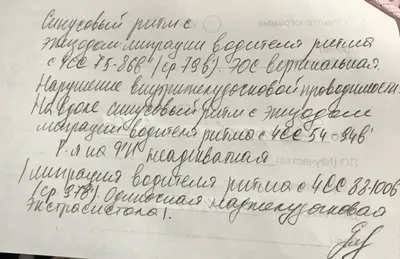 Синусовый ритм с
эпизодом миграции водителя ритма
с ЧСС 75-86в' (ср 79в'). ЭОС вертикальная.
Нарушение внутрижелудочковой проводимости.
На вдохе синусовый ритм с эпизодом
миграции водителя ритма с ЧСС 54-94в'
Р-я на ФН неадекватная
/миграция водителя ритма с ЧСС 83-100в'
(ср 97в'). Одиночная наджелудочковая
экстрасистола/.